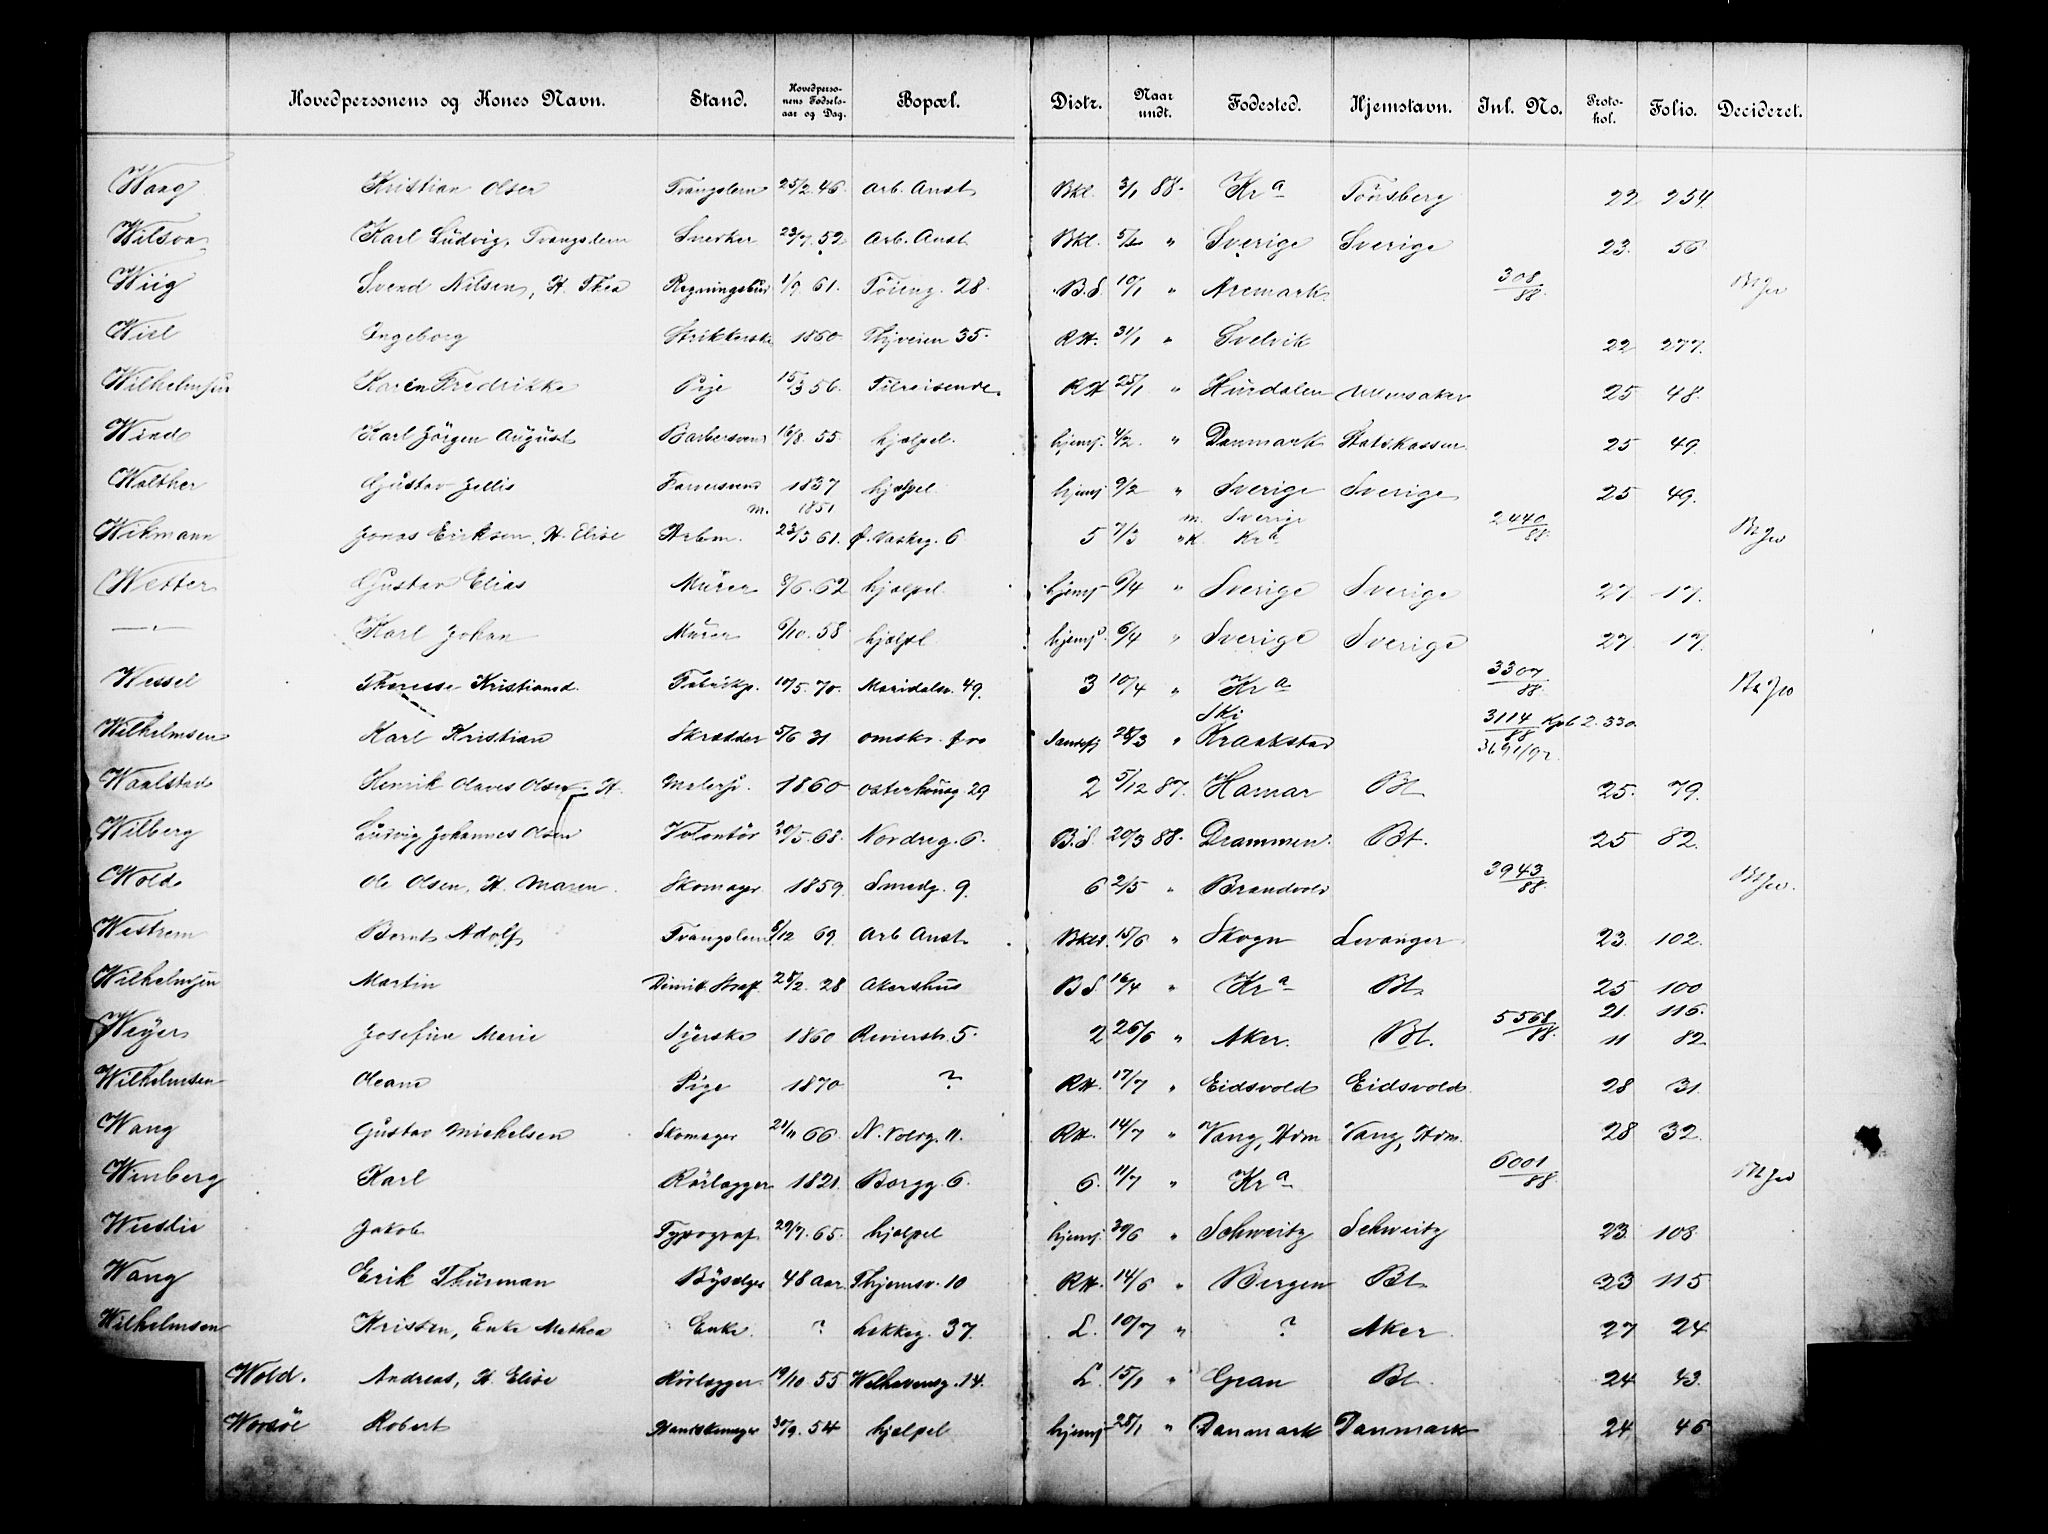 Hovedpersonens og Kones Navn. Stand. Hovedpersonens Fødselsaar og Dag. Bopæl. Distr. Naar undt. Fødested. Hjemstavn. Inl. No. Protokol. Folio. Decideret.
Wang Kristian Olsen Tvangslem 25/2. 46. Arb. Anst. Bkl. 3/1 88. Kra Tönsberg 22 254.
Wilson Karl Ludvig, Tvangslem Snedker 23/7. 52 Arb. Anst. Bkl. " Sverige Sverige 23. 56
Wiig Svend Nilsen, H. Thea Regningsbud 1/9 61. Töieng. 28. B.S. 10/1 " Aremark 308/88.
Wiel Ingeborg Strikkerske 1860 Thjveien 35. RH. 31/1 " Svelvik 22 277.
Wilhelmsen Karen Fredrikke Pige 15/3 56. Tilreisende. RH 25/1 " Hurdalen Ullensaker 25 48.
Wind Karl Jörgen August Barbersvend 16/8. 55. hjælpel. hjemsj. 4/2 " Danmark Statskassen 25 49.
Walther Gustav Farversvend 1837 hjælpel. hjemsj. 9/2 " Sverige Sverige 25 49.
m. 1851 m. Sverige
Wikmann Jonas Eriksen, H. Elise Arbm. 23/3 61. f. Vaskeg. 6 5 7/3 " K. Kra 2440/88.
Wetter Gustav Elias Murer 8/6. 62 hjælpel. hjemsj. 6/4 " Sverige Sverige 27. 17.
— " — Karl Johan Murer 6/10. 58 hjælpel. hjemsj. 6/4 " Sverige Sverige 27. 17.
Wessel Therese Kristiansd. Fabrikp. 10/5. 70. Maridalsv. 49. 3 10/4 " Kra 3307/88.
Ski
Wilhelmsen Karl Kristian Skrædder 5/6 31 omstr. 28/3 " Kraakstad 3114/88 2. 330.
Waalstad Henrik Olaves Olsen H. Malersv. 1860 Osterhausg. 29 2 5/12 87. Hamar Bt. 25. 79.
Wilberg Ludvig Johannes Olsen Volontör 30/5. 68. Nordreg. 6. B.S. 20/3 88. Drammen. Bt. 25 82.
Wold Ole Olsen, H. Maren. Skomager 1859. Smedg. 9. 6 2/5 " Brandvold 3943/88.
Westrem Bernt Adolf Tvangslem 8/12 69. Arb. Anst. Bkld. 15/6 " Skogn Levanger 23. 102.
Wilhelmsen Martin Dimit. Straff. 28/2. 28 Akershus B.S. 16/4 " Kra Bt. 25 100
Weyer Josefine Marie Syerske 1860 Revierstr. 5. 2 26/6 " Aker. Bt. 5568/88. 21. 116.
11 82
Wilhelmsen Oleane Pige 1870 ? RH. 17/7 " Eidsvold Eidsvold 28 31.
Wang Gustav Michelsen Skomager 21/11 66. N. Voldg. 11. RH. 14/7 " Vang, Hdm Vang, Hdm. 28 32.
Winberg Karl Rörlægger 1821. Borgg. 6. 6. 11/7 " Kra 6001/88.
Jakob Typograf 29/7. 65. hjælpel hjemsj. 30/6 " Schweitz Schweitz 23. 108.
Wang Erik Thurman Bysælger 48 aar. Thjemsv. 10 RH. 14/6 " Bergen Bt. 23 115
Wilhelmsen Kristen, Enke Mathea Enke. ? Lekkeg. 37. L. 10/7 " ? Aker 27 24
Wold. Andreas, H. Elise Rörlægger 19/10. 55 Welhavensg. 14. L. 15/1 " Gran Bt. 24 43.
Worsöe Robert Handskemager 30/9. 54 hjælpel. hjemsj. 28/1 " Danmark Danmark 24 46